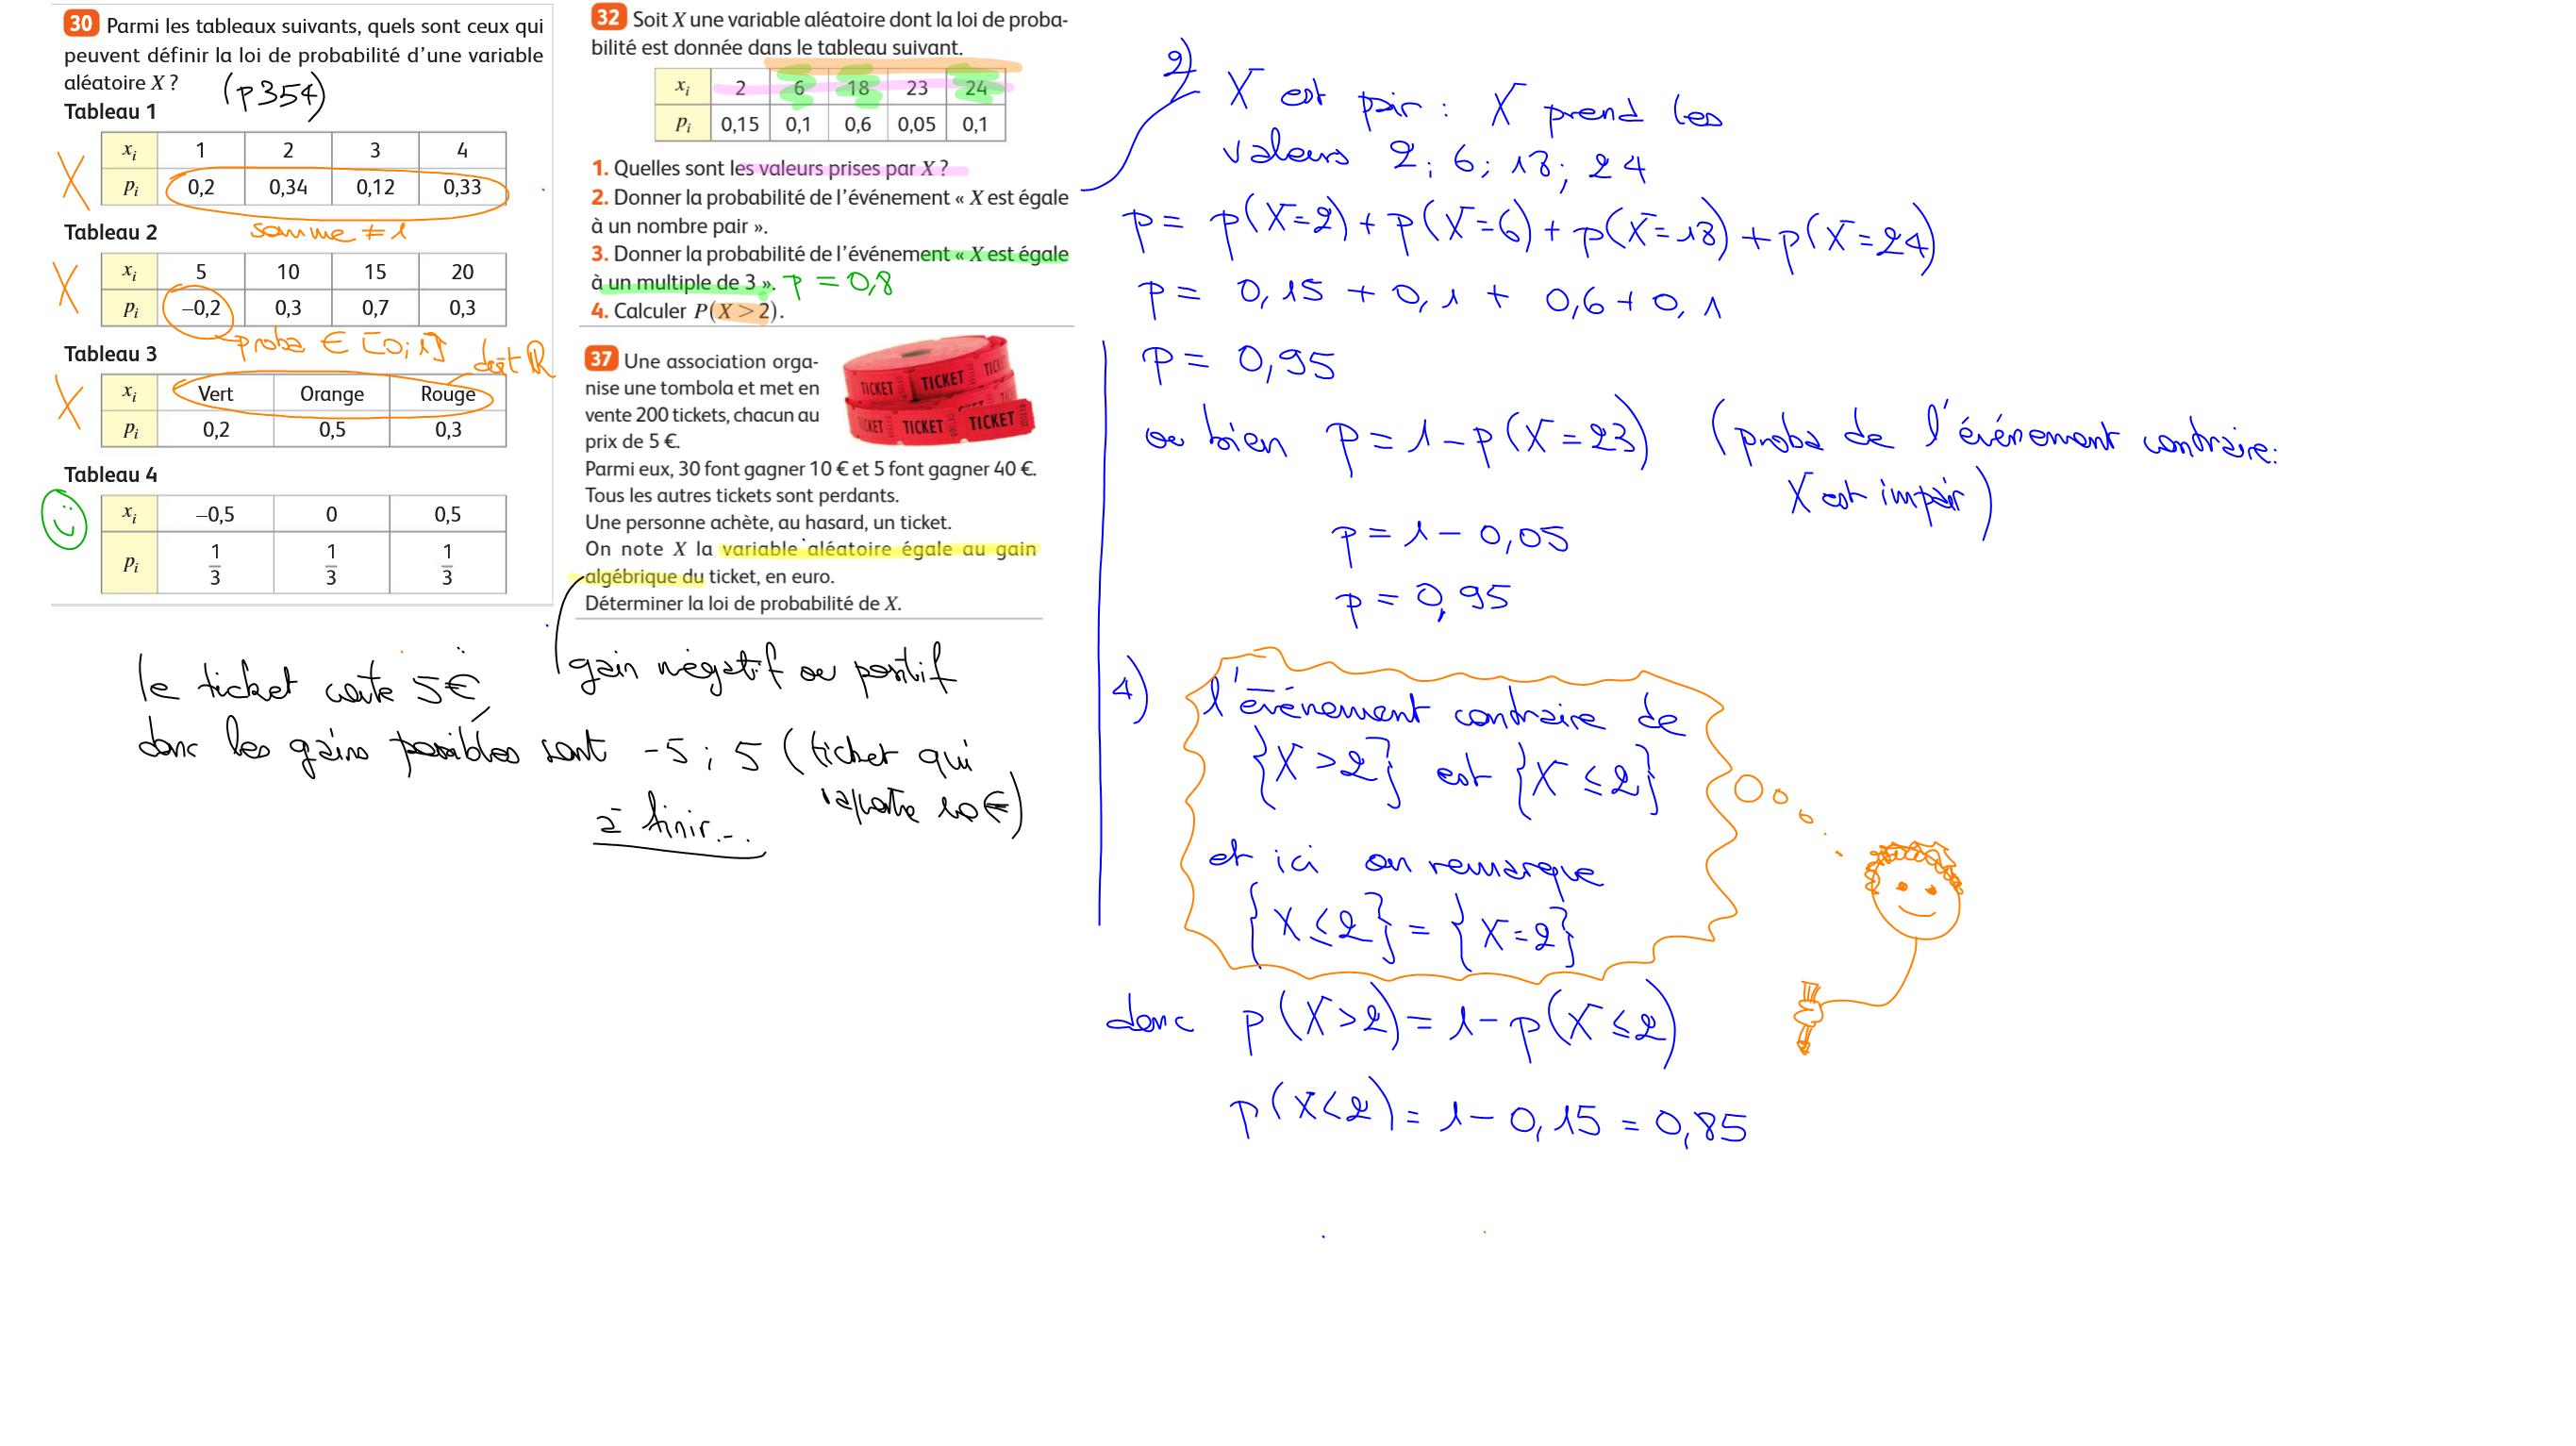 30 Parmi les tableaux suivants, quels sont ceux qui
peuvent définir la loi de probabilité d'une variable
aléatoire X ?
(p354)
Tableau 1
xi 1 2 3 4
X
pi 0,2 0,34 0,12 0,33
somme ≠ 1
Tableau 2
xi 5 10 15 20
X
pi −0,2 0,3 0,7 0,3
proba ∈ [0;1]
Tableau 3
doit ℝ
xi Vert Orange Rouge
X
pi 0,2 0,5 0,3
Tableau 4
xi −0,5 0 0,5
pi 1/3 1/3 1/3
32 Soit X une variable aléatoire dont la loi de proba-
bilité est donnée dans le tableau suivant.
xi 2 6 18 23 24
pi 0,15 0,1 0,6 0,05 0,1
1. Quelles sont les valeurs prises par X ?
2. Donner la probabilité de l'événement « X est égale
à un nombre pair ».
3. Donner la probabilité de l'événement « X est égale
à un multiple de 3 ». p = 0,8
4. Calculer P(X > 2).
37 Une association orga-
nise une tombola et met en
vente 200 tickets, chacun au
prix de 5 €.
TICKET TICKET TICKET
TICKET TICKET
Parmi eux, 30 font gagner 10 € et 5 font gagner 40 €.
Tous les autres tickets sont perdants.
Une personne achète, au hasard, un ticket.
On note X la variable aléatoire égale au gain
algébrique du ticket, en euro.
Déterminer la loi de probabilité de X.
gain négatif ou positif
le ticket coûte 5€,
donc les gains possibles sont -5 ; 5 (ticket qui
rapporte 10€)
à finir...
2) X est pair : X prend les
valeurs 2 ; 6 ; 18 ; 24
p = p(X=2) + p(X=6) + p(X=18) + p(X=24)
p = 0,15 + 0,1 + 0,6 + 0,1
p = 0,95
ou bien p = 1 - p(X = 23) (proba de l'événement contraire :
X est impair)
p = 1 - 0,05
p = 0,95
4) l'événement contraire de
{X > 2} est {X ≤ 2}
et ici on remarque
{X ≤ 2} = {X = 2}
donc p(X > 2) = 1 - p(X ≤ 2)
p(X < 2) = 1 - 0,15 = 0,85